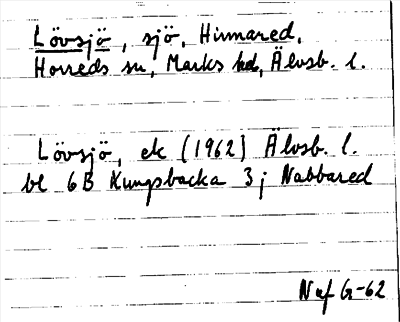 Lövsjö, sjö, Hinnared,
Horreds sn, Marks hd, Älvsb. l.
Lövsjö, ek (1962) Älvsb. l.
bl 6B Kungsbacka 3j Nabbared
Naf G-62